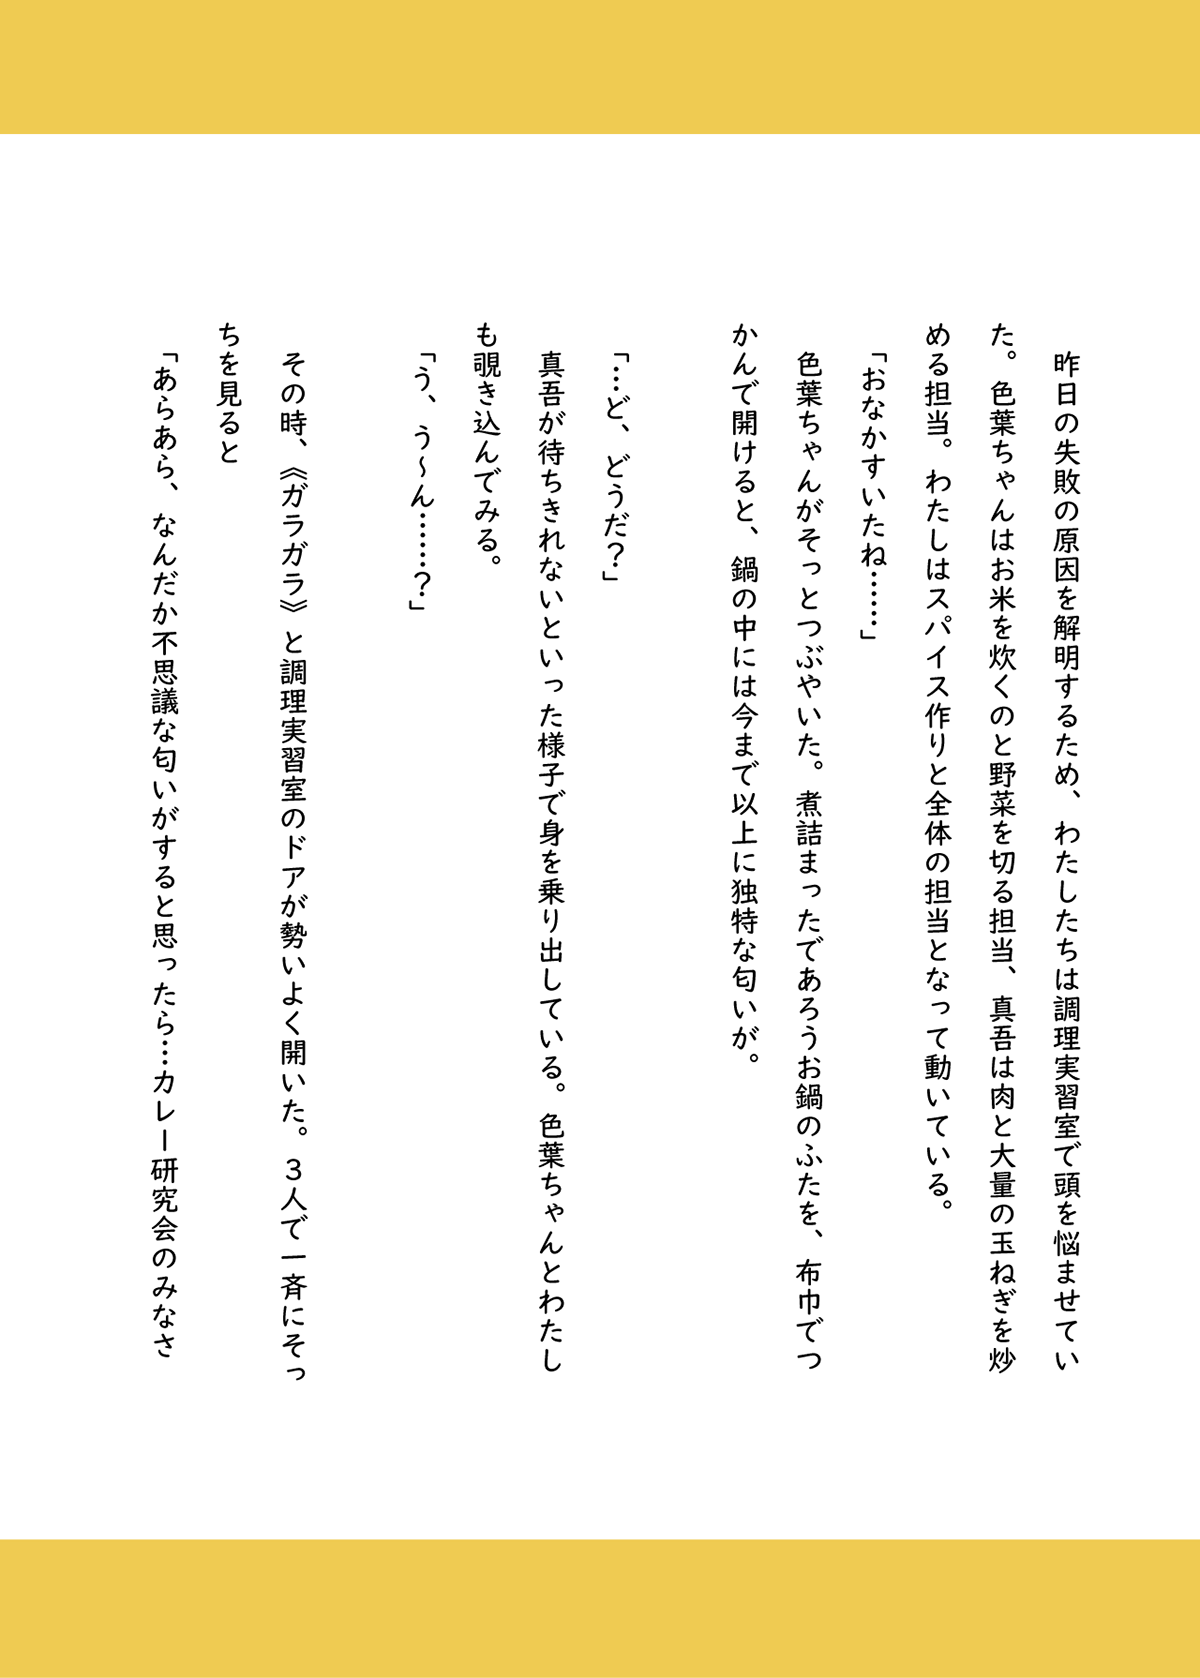 昨日の失敗の原因を解明するため、わたしたちは調理実習室で頭を悩ませてい
た。色葉ちゃんはお米を炊くのと野菜を切る担当、真吾は肉と大量の玉ねぎを炒
める担当。わたしはスパイス作りと全体の担当となって動いている。
　「おなかすいたね……」
　色葉ちゃんがそっとつぶやいた。煮詰まったであろうお鍋のふたを、布巾でつ
かんで開けると、鍋の中には今まで以上に独特な匂いが。
　「…ど、どうだ？」
　真吾が待ちきれないといった様子で身を乗り出している。色葉ちゃんとわたし
も覗き込んでみる。
　「う、う～ん……？」
　その時、《ガラガラ》と調理実習室のドアが勢いよく開いた。３人で一斉にそっ
ちを見ると
　「あらあら、なんだか不思議な匂いがすると思ったら…カレー研究会のみなさ